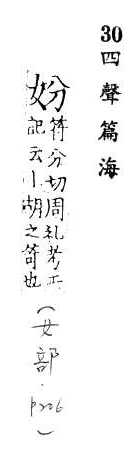 30四聲篇海
妢
符分切周礼考工
記云小胡之笴也
(女部.P226)